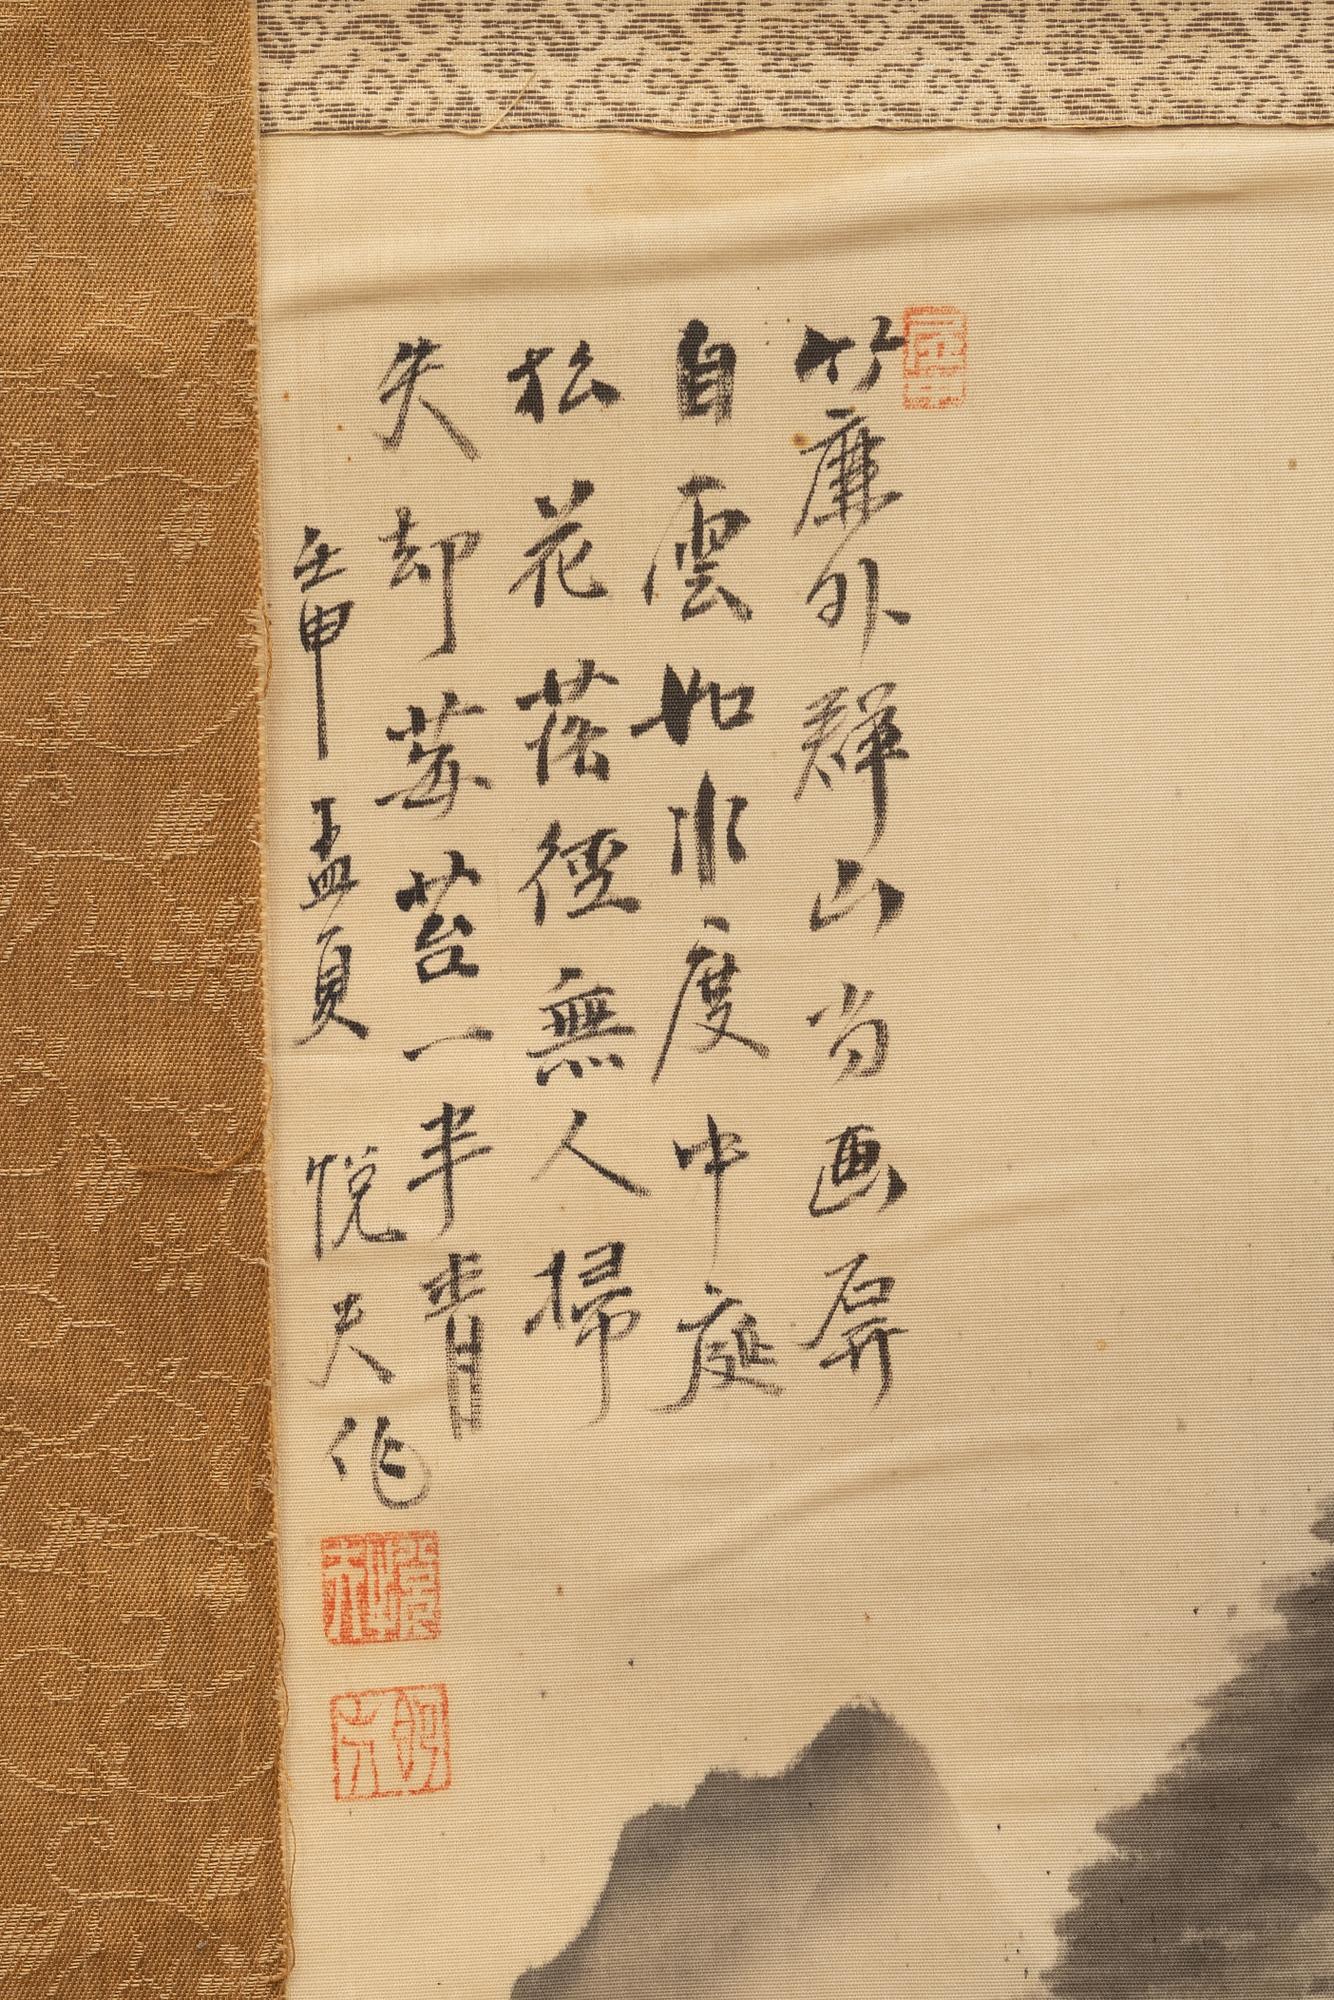 竹廉外群山当画屏
白雲如水度中庭
松花落徑無人掃
失却莓苔一半青
壬申孟夏 悦夫作